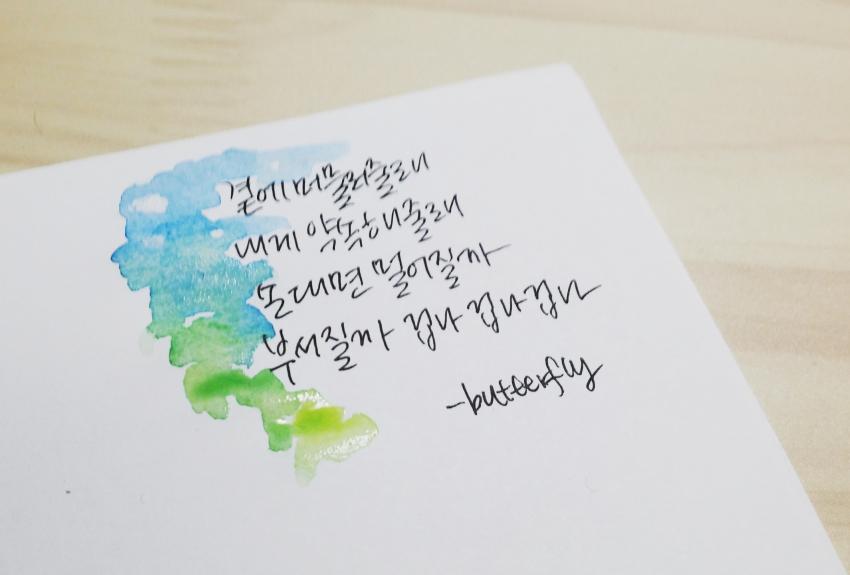 곁에 머물러줄래
내게 약속해줄래
손대면 멀어질까
부서질까 겁나 겁나 겁나
-butterfly